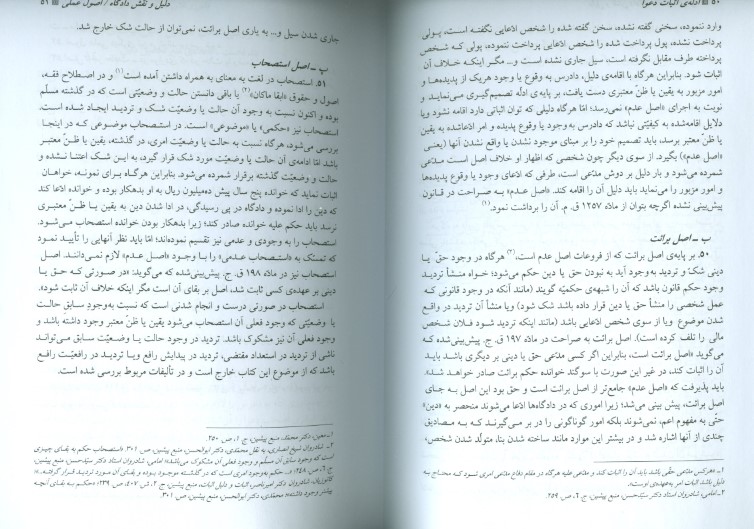 ۵۰ ادله‌ی اثبات دعوا
وارد ننموده، سخنی گفته نشده، سخن گفته شده را شخص ادعایی نگفته است، پولی
پرداخت نشده، پول پرداخت شده را شخص ادعایی پرداخت ننموده، پولی که شخص
پرداخته طرف مقابل نگرفته است، سیل جاری نشده است و... مگر اینکه خلاف آن
اثبات شود. بنابراین هرگاه با اقامه‌ی دلیل، دادرس به وقوع یا وجود هریک از پدیده‌ها و
امور مزبور به یقین یا ظنّ معتبری دست یافت، بر پایه‌ی ادلّه تصمیم‌گیری می‌نماید و
نوبت به اجرای «اصل عدم» نمی‌رسد؛ امّا هرگاه دلیلی که توان اثباتی دارد اقامه نشود ویا
دلایل اقامه‌شده به کیفیّتی نباشد که دادرس به وجود یا وقوع پدیده و امر ادّعاشده به یقین
یا ظنّ معتبر برسد، باید تصمیم خود را بر مبنای موجود نشدن یا واقع نشدن آنها (یعنی
«اصل عدم») بگیرد. از سوی دیگر چون شخصی که اظهار او خلاف اصل است مدّعی
شمرده می‌شود و بار دلیل بر دوش مدّعی است، طرفی که ادّعای وجود یا وقوع پدیده‌ها
و امور مزبور را می‌نماید باید دلیل آن را اقامه کند. «اصل عدم» به صراحت در قانون
پیش‌بینی نشده اگرچه بتوان از مادّه ۱۲۵۷ ق. م. آن را برداشت نمود.(۱)
ب – اصل برائت
۵۰. بر پایه‌ی اصل برائت که از فروعات اصل عدم است،(۲) هرگاه در وجود حقّ یا
دینی شکّ و تردید به وجود آید به نبودن حق یا دین حکم می‌شود؛ خواه منشأ تردید
وجود حکم قانون باشد که آن را شبهه‌ی حکمیّه گویند (مانند آنکه در وجود قانونی که
عمل شخصی را منشأ حق یا دین قرار داده باشد شک شود) ویا منشأ آن تردید در واقع
شدن موضوع ویا از سوی شخص ادّعایی باشد (مانند اینکه تردید شود فلان شخص
مالی را تلف کرده است). اصل برائت به صراحت در مادّه ۱۹۷ ق. ج. پیش‌بینی‌شده که
می‌گوید «اصل برائت است، بنابراین اگر کسی مدّعی حق یا دینی بر دیگری باشد، باید
آن را اثبات کند، در غیر این صورت با سوگند خوانده حکم برائت صادر خواهد شد».
باید پذیرفت که «اصل عدم» جامع‌تر از اصل برائت است و حق بود این اصل به جای
اصل برائت، پیش بینی می‌شد؛ زیرا اموری که در دادگاه‌ها ادّعا می‌شوند منحصر به «دین»
حتّی به مفهوم اعم، نمی‌شوند بلکه امور گوناگونی را در بر می‌گیرند که به مصادیق
چندی از آنها اشاره شد و در بیشتر این موارد مانند ساخته شدن بنا، متولّد شدن شخص،
۱ـ «هرکس مدّعی حقّی باشد باید آن را اثبات کند و مدّعی علیه هرگاه در مقام دفاع مدّعی امری شود که محتاج به
دلیل باشد اثبات امر به‌عهده‌ی اوست».
۲ـ امامی، شادروان استاد دکتر سیّدحسن، منبع پیشین، ج ۶، ص ۲۵۹.
دلیل و نقش دادگاه / اصول عملی ۵۱
جاری شدن سیل و... به یاری اصل برائت، نمی‌توان از حالت شک خارج شد.
پ – اصل استصحاب
۵۱. استصحاب در لغت به معنای به همراه داشتن آمده است(۱) و در اصطلاح فقه،
اصول و حقوق «ابقا ماکان»(۲) یا باقی دانستن حالت و وضعیّتی است که در گذشته مسلّم
بوده و اکنون نسبت به وجود آن حالت یا وضعیّت شک و تردید ایجاد شده است.
استصحاب نیز «حکمی» یا «موضوعی» است. در استصحاب موضوعی که در اینجا
بررسی می‌شود، هرگاه نسبت به حالت یا وضعیّت امری، در گذشته، یقین یا ظنّ معتبر
باشد امّا ادامه‌ی آن حالت یا وضعیّت مورد شک قرار گیرد، به این شک اعتنا نشده و
حالت و وضعیّت گذشته برقرار شمرده می‌شود. بنابراین هرگاه برای نمونه، خواهان
اثبات نماید که خوانده پنج سال پیش ده‌میلیون ریال به او بدهکار بوده و خوانده ادّعا کند
که دین را ادا نموده و دادگاه در پی رسیدگی، در ادا شدن دین به یقین یا ظنّ معتبری
نرسد باید حکم علیه خوانده صادر کند؛ زیرا بدهکار بودن خوانده استصحاب می‌شود.
استصحاب را به وجودی و عدمی نیز تقسیم نموده‌اند؛ امّا باید نظر آنهایی را تأیید نمود
که تمسّک به «استصحاب عدمی» را با وجود «اصل عدم» لازم نمی‌دانند. اصل
استصحاب نیز در مادّه ۱۹۸ ق. ج. پیش‌بینی‌شده که می‌گوید: «در صورتی که حق یا
دینی بر عهده‌ی کسی ثابت شد، اصل بر بقای آن است مگر اینکه خلاف آن ثابت شود».
استصحاب در صورتی درست و انجام شدنی است که نسبت به‌وجودِ سابق حالت
یا وضعیّتی که وجود فعلی آن استصحاب می‌شود یقین یا ظنّ معتبر وجود داشته باشد و
وجود فعلی آن نیز مشکوک باشد. تردید در وجود حالت یا وضعیّت سابق می‌تواند
ناشی از تردید در استعداد مقتضی، تردید در پیدایش رافع ویا تردید در رافعیّت رافع
باشد که از موضوع این کتاب خارج است و در تألیفات مربوط بررسی شده است.
۱ـ معین، دکتر محمّد، منبع پیشین، ج ۱، ص ۲۵۰.
۲ـ شادروان شیخ انصاری، به نقل محمّدی، دکتر ابوالحسن، منبع پیشین، ص ۳۰۱. «استصحاب حکم به بقای چیزی
است که وجود سابق آن مسلّم و وجود فعلی آن مشکوک می‌باشد» امامی، شادروان استاد دکتر سیّدحسن، منبع پیشین،
بیشتر وجود داشته» محمّدی، دکتر ابوالحسن، منبع پیشین، ص ۳۰۱.